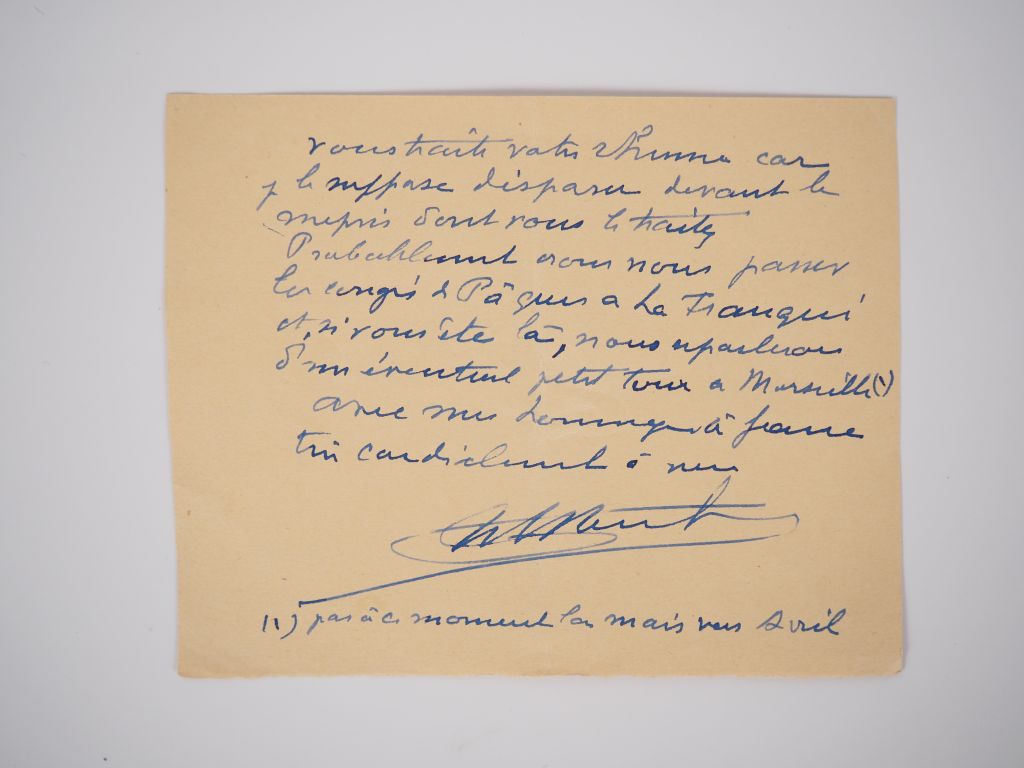 vous traité votre rhume car
je le suppose disparu devant le
mepris dont vous le traitez
Probablement irons nous passer
les congés de Pâques a La Franqui
et, si vous ête là, nous reparlerons
d'un éventuel petit tour a Marseille (1)
avec mes hommages à Jeanne
très cordialement à vous
(1) pas à ce moment la mais vers Avril